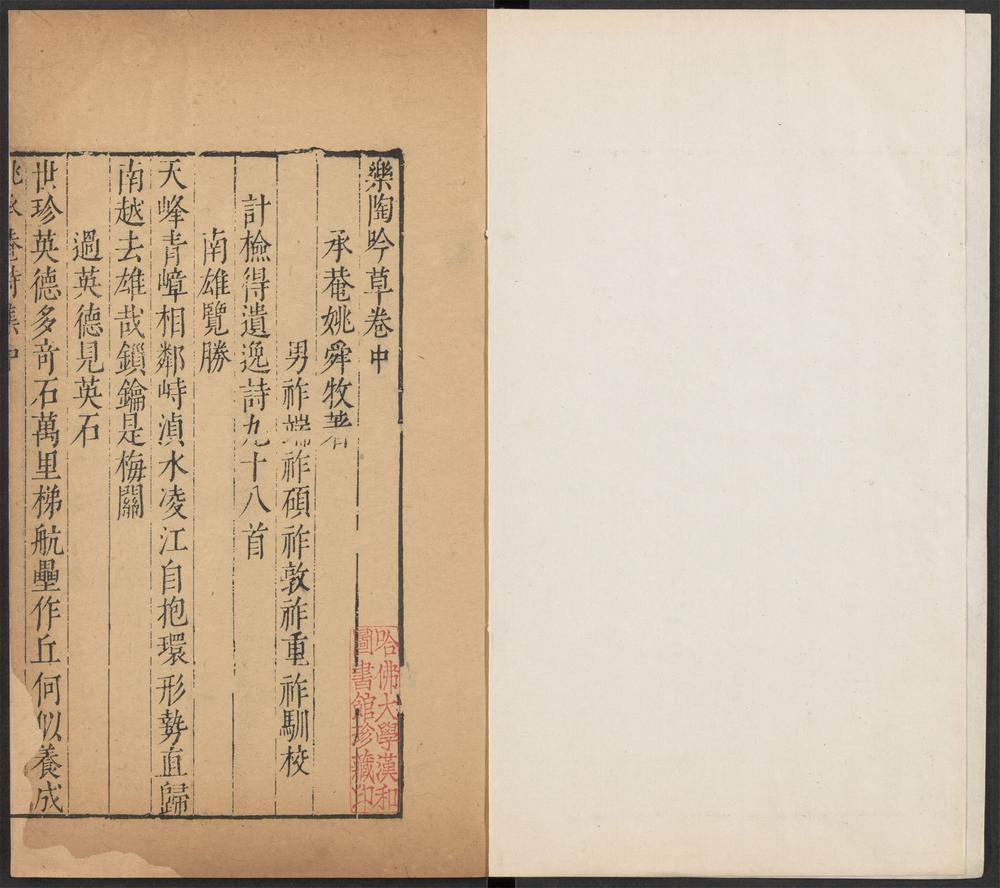 樂陶吟草卷中
承菴姚舜牧著
男祚端祚碩祚敦祚重祚馴校
計檢得遺逸詩九十八首
南雄覽勝
天峰青嶂相鄰峙湞水凌江自抱環形勢直歸
南越去雄哉鎖鑰是梅關
過英德見英石
世珍英德多奇石萬里梯航壘作丘何似養成
姚承菴詩集中
哈佛大學漢和
圖書館珍藏印